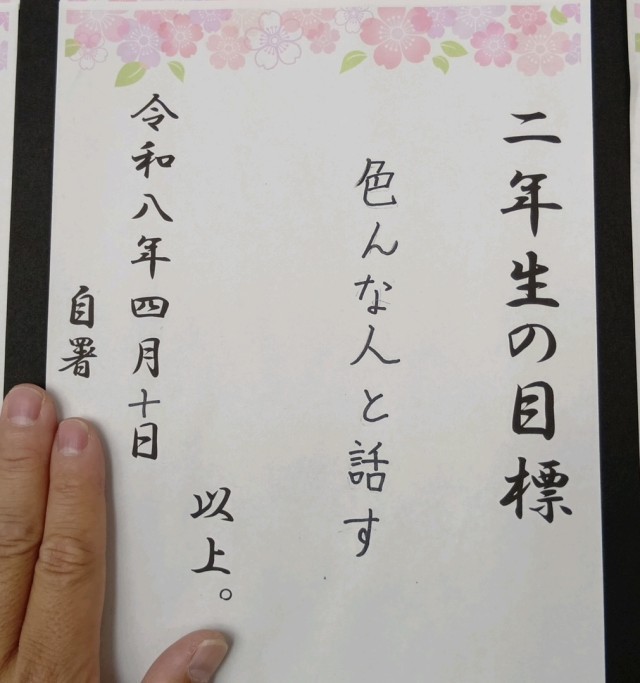 二年生の目標
色んな人と話す
以上。
令和八年四月十日
自署